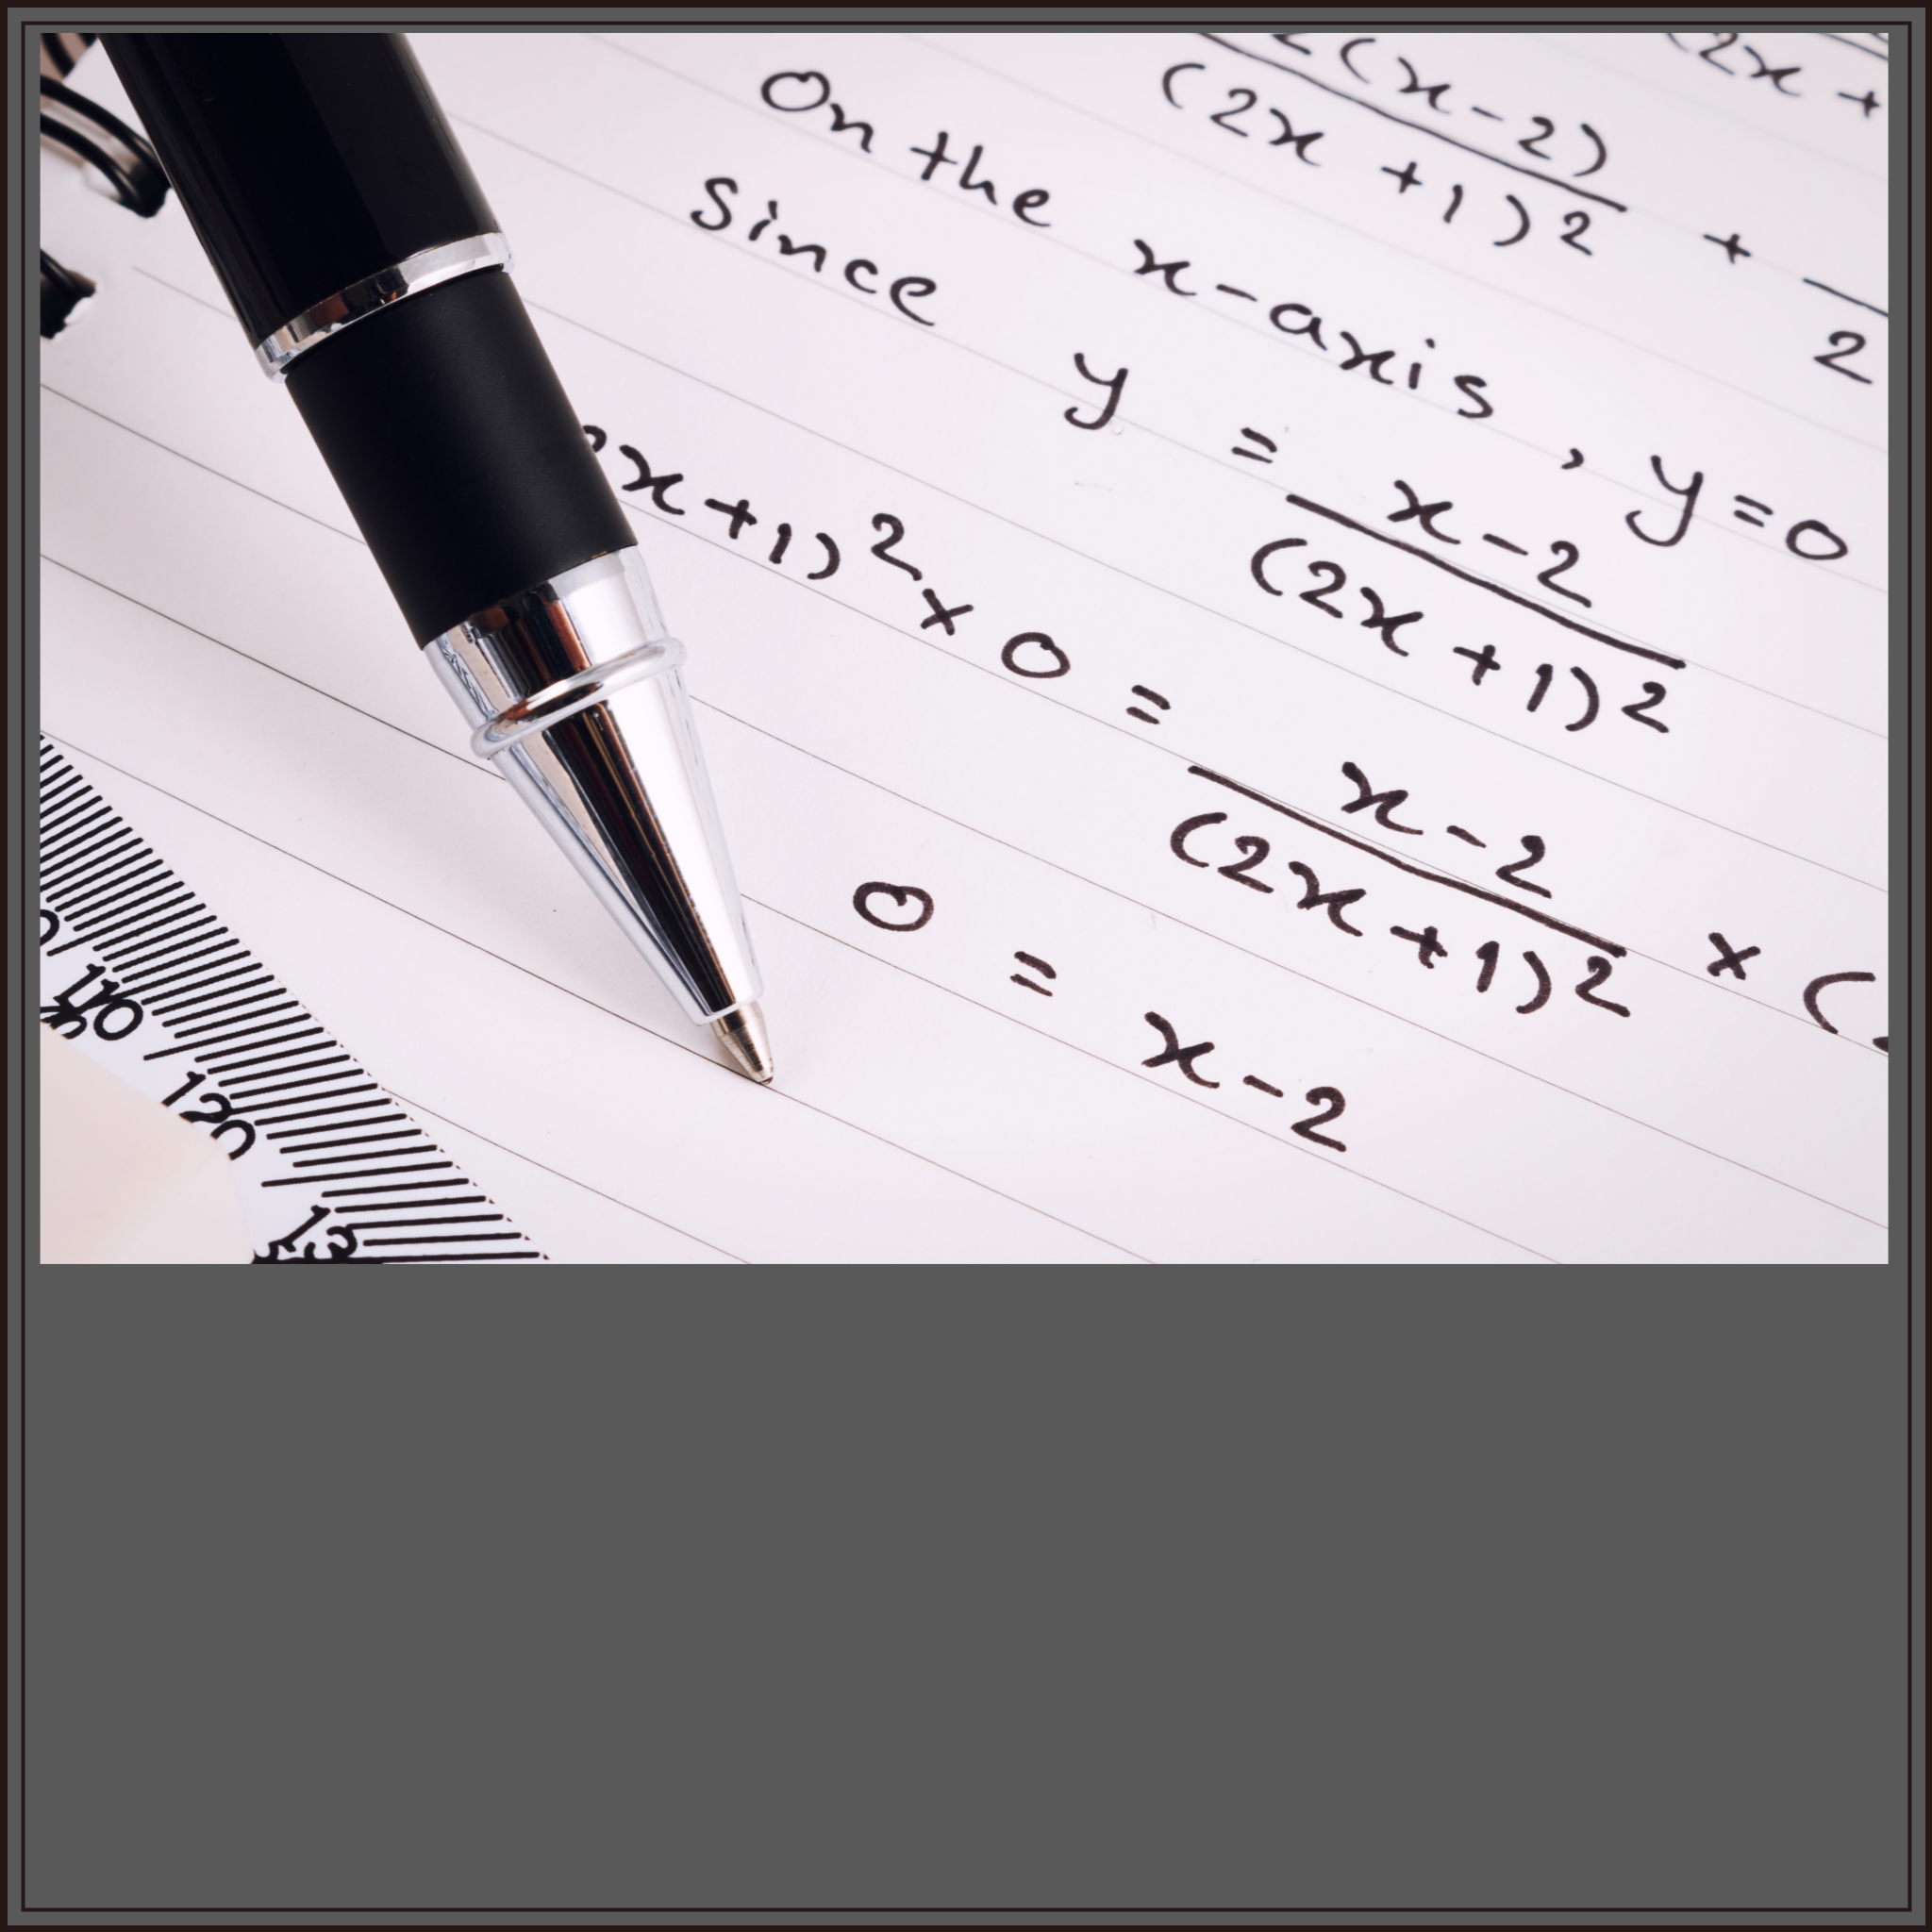 2(x-2) 2x +
(2x +1)² + 2
On the x-axis, y=0
Since y = x-2
(2x +1)²
2x+1)² x 0 = x-2
(2x+1)² x (2
0 = x-2
110
120
13